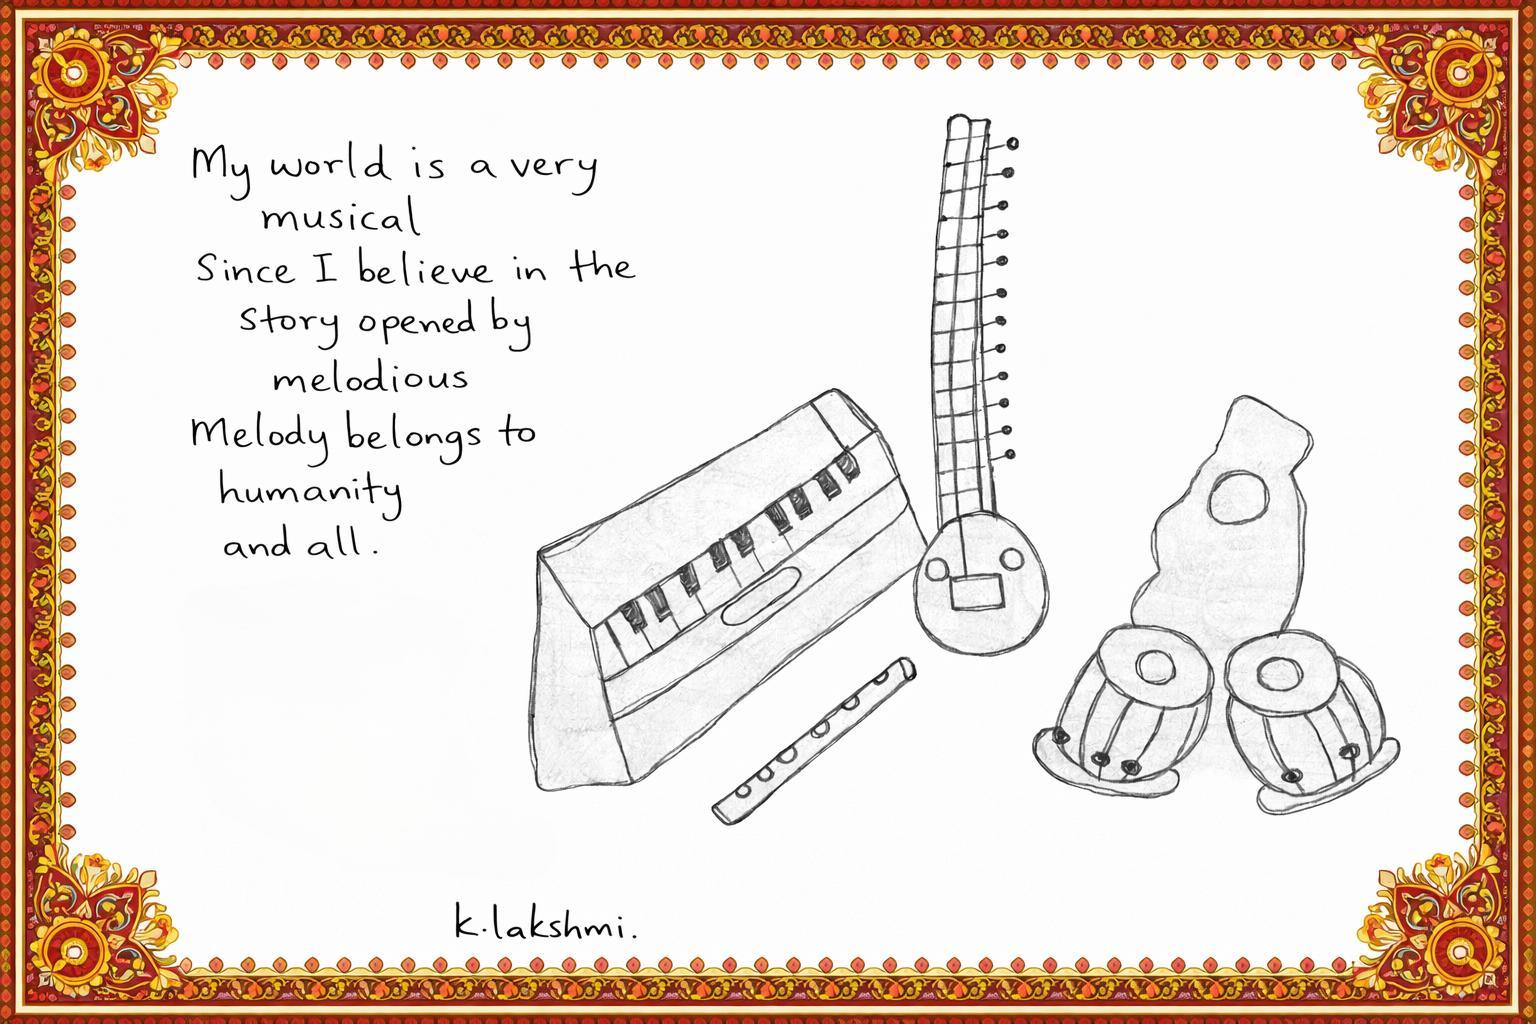 My world is a very
musical
Since I believe in the
story opened by
melodious
Melody belongs to
humanity
and all.
k.lakshmi.